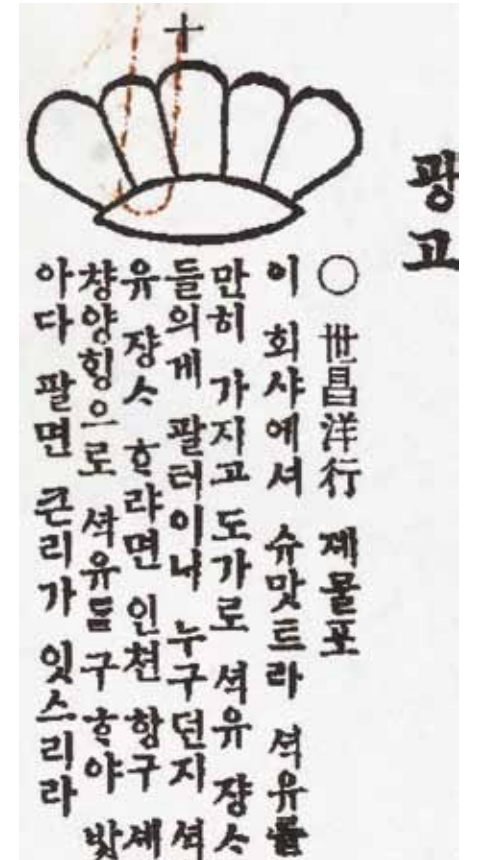 광고
○ 世昌洋行 제물포
이 회샤에셔 슈맛트라 셕유를
만히 가지고 도가로 셕유 쟝ᄉ
들의게 팔터이니 누구던지 셕
유 쟝ᄉ ᄒᆞ랴면 인쳔 항구 셰
챵양ᄒᆡᆼ으로 셕유를 구ᄒᆞ야 밧
아다 팔면 큰리가 잇스리라